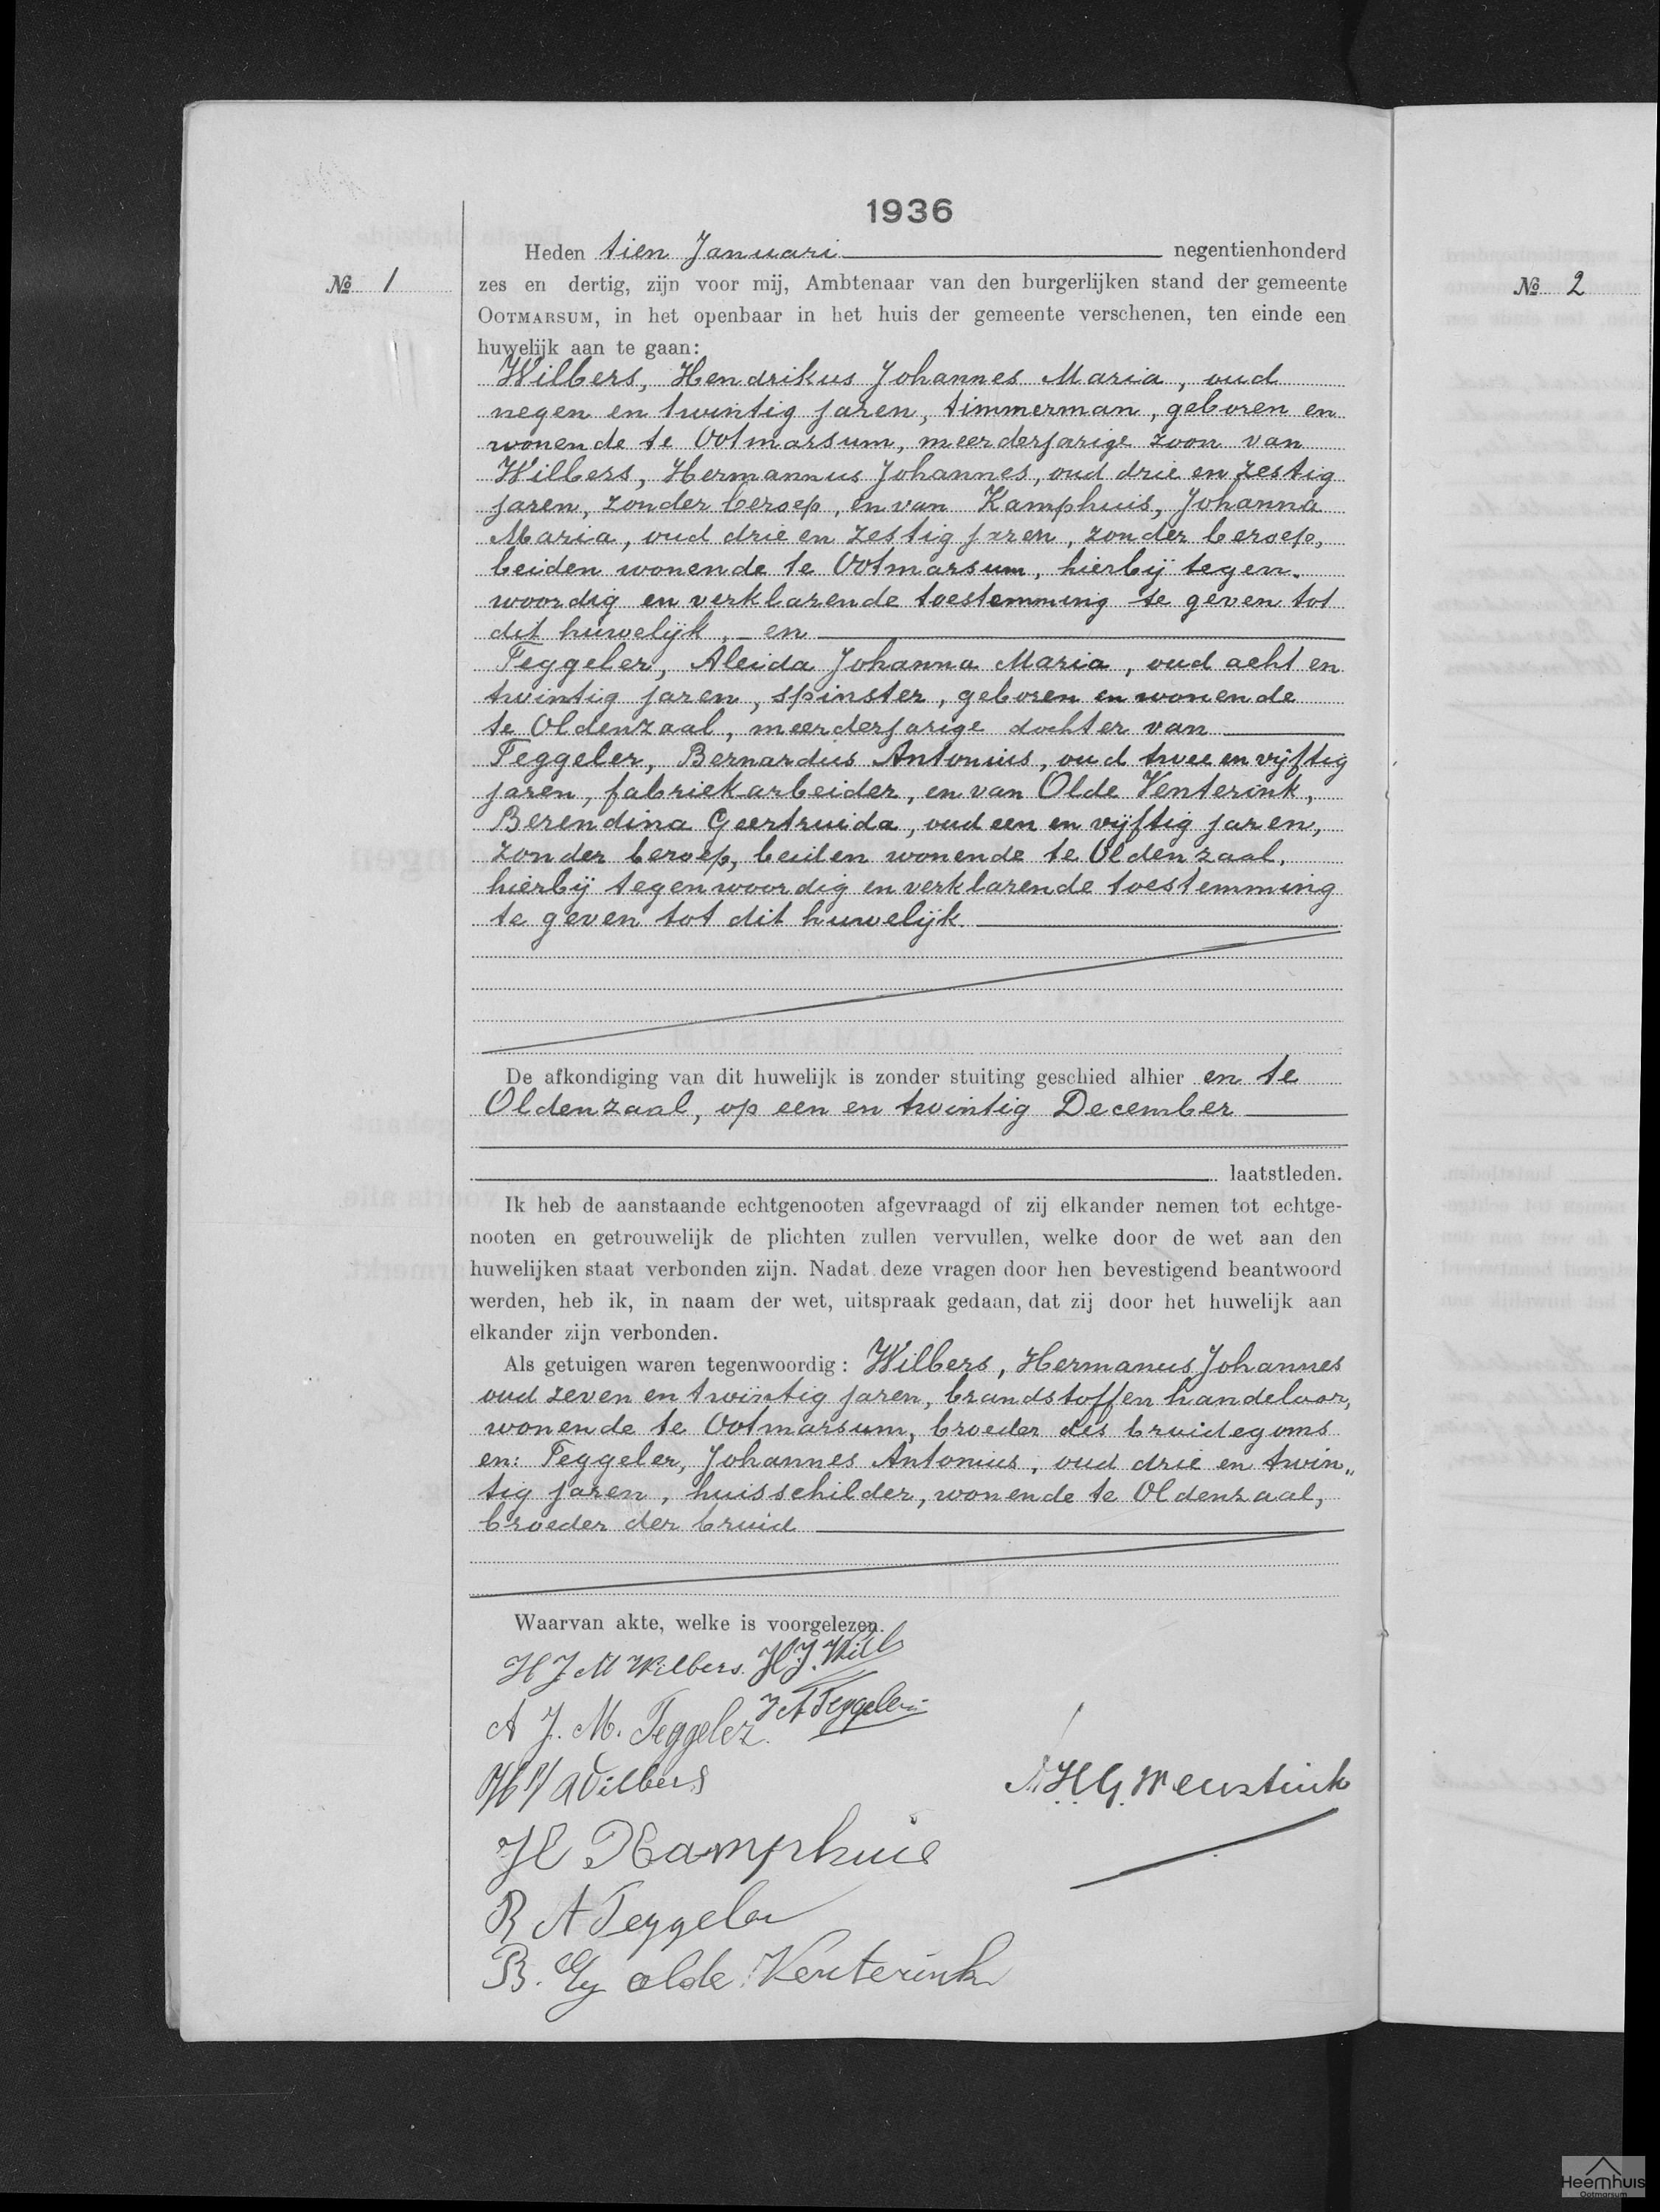 1936
Heden tien Januari negentienhonderd
№ 1
zes en dertig, zijn voor mij, Ambtenaar van den burgerlijken stand der gemeente
OOTMARSUM, in het openbaar in het huis der gemeente verschenen, ten einde een
huwelijk aan te gaan:
Wilbers, Hendrikus Johannes Maria, oud
negen en twintig jaren, timmerman, geboren en
wonende te Ootmarsum, meerderjarige zoon van
Wilbers, Hermannus Johannes, oud drie en zestig
jaren, zonder beroep, en van Kamphuis, Johanna
Maria, oud drie en zestig jaren, zonder beroep,
beiden wonende te Ootmarsum, hierbij tegen-
woordig en verklarende toestemming te geven tot
dit huwelijk, - en
Teggeler, Aleida Johanna Maria, oud acht en
twintig jaren, spinster, geboren en wonende
te Oldenzaal, meerderjarige dochter van
Teggeler, Bernardus Antonius, oud twee en vijftig
jaren, fabriekarbeider, en van Olde Venterink,
Berendina Geertruida, oud een en vijftig jaren,
zonder beroep, beiden wonende te Oldenzaal,
hierbij tegenwoordig en verklarende toestemming
te geven tot dit huwelijk.
De afkondiging van dit huwelijk is zonder stuiting geschied alhier en te
Oldenzaal, op een en twintig December
laatstleden.
Ik heb de aanstaande echtgenooten afgevraagd of zij elkander nemen tot echtge-
nooten en getrouwelijk de plichten zullen vervullen, welke door de wet aan den
huwelijken staat verbonden zijn. Nadat deze vragen door hen bevestigend beantwoord
werden, heb ik, in naam der wet, uitspraak gedaan, dat zij door het huwelijk aan
elkander zijn verbonden.
Als getuigen waren tegenwoordig: Wilbers, Hermanus Johannes
oud zeven en twintig jaren, brandstoffenhandelaar,
wonende te Ootmarsum, broeder des bruidegoms
en: Teggeler, Johannes Antonius, oud drie en twin„
tig jaren, huisschilder, wonende te Oldenzaal,
broeder der bruid
Waarvan akte, welke is voorgelezen.
H J M Wilbers. H.J. Wilb
A J. M. Teggeler. J A Teggeler
H J Wilbers
H G Meustink
J Kamphuis
B A Teggeler
B. G olde Venterink
№ 2
Heemhuis
Ootmarsum